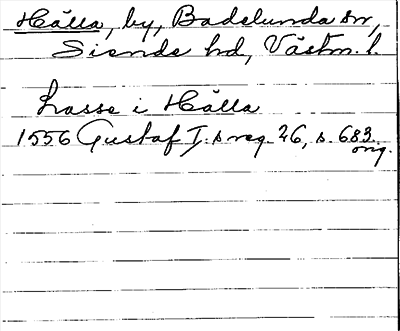 Hälla, by, Badelunda sn,
Siende hd, Västm. l.
Lasse i Hälla
1556 Gustaf I:s reg. 26, s. 683.
orig.